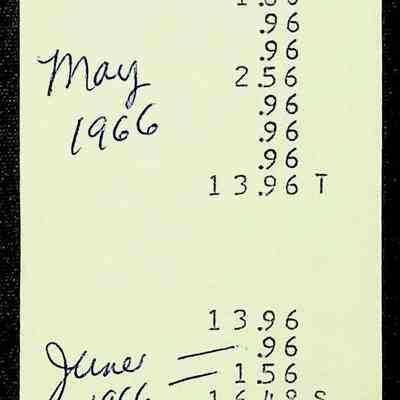 .96
.96
May 2.56
.96
1966 .96
.96
13.96 T
13.96
June — .96
— 1.56
1966 16.48 S